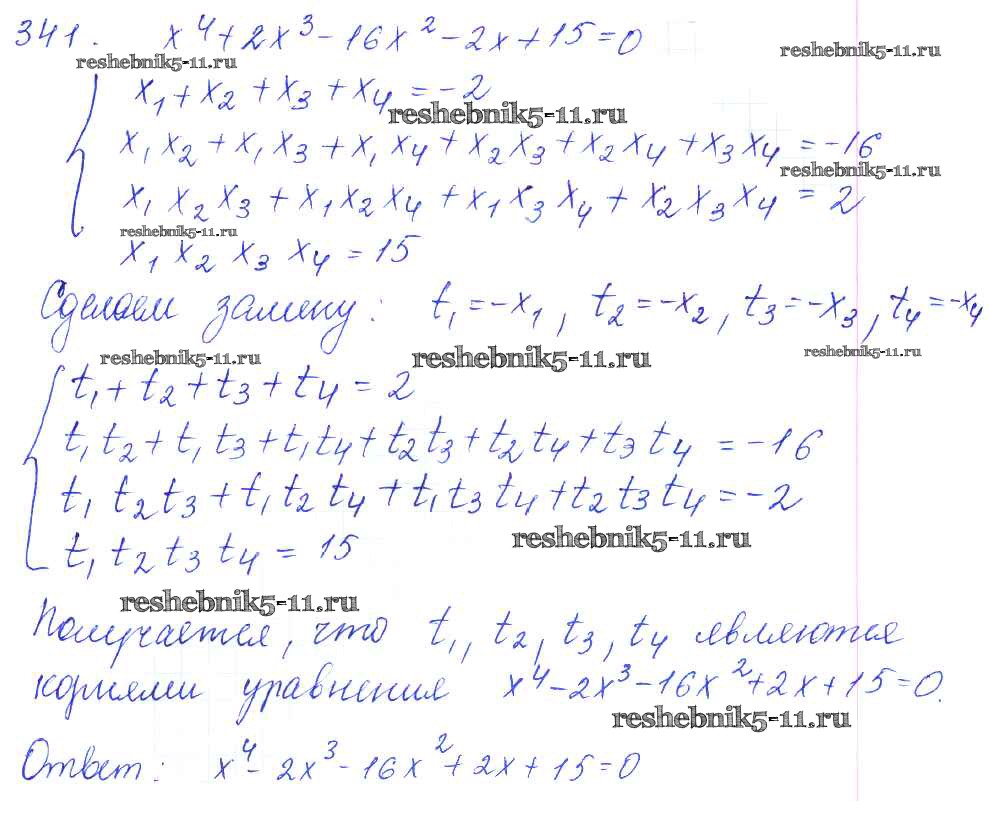 341. x⁴+2x³-16x²-2x+15=0
reshebnik5-11.ru
reshebnik5-11.ru
x₁+x₂+x₃+x₄=-2
reshebnik5-11.ru
x₁x₂+x₁x₃+x₁x₄+x₂x₃+x₂x₄+x₃x₄=-16
reshebnik5-11.ru
x₁x₂x₃+x₁x₂x₄+x₁x₃x₄+x₂x₃x₄=2
reshebnik5-11.ru
x₁x₂x₃x₄=15
Сделаем замену: t₁=-x₁, t₂=-x₂, t₃=-x₃, t₄=-x₄
reshebnik5-11.ru reshebnik5-11.ru reshebnik5-11.ru
t₁+t₂+t₃+t₄=2
t₁t₂+t₁t₃+t₁t₄+t₂t₃+t₂t₄+t₃t₄=-16
t₁t₂t₃+t₁t₂t₄+t₁t₃t₄+t₂t₃t₄=-2
reshebnik5-11.ru
t₁t₂t₃t₄=15
reshebnik5-11.ru
Получается, что t₁, t₂, t₃, t₄ являются
корнями уравнения x⁴-2x³-16x²+2x+15=0.
reshebnik5-11.ru
Ответ: x⁴-2x³-16x²+2x+15=0